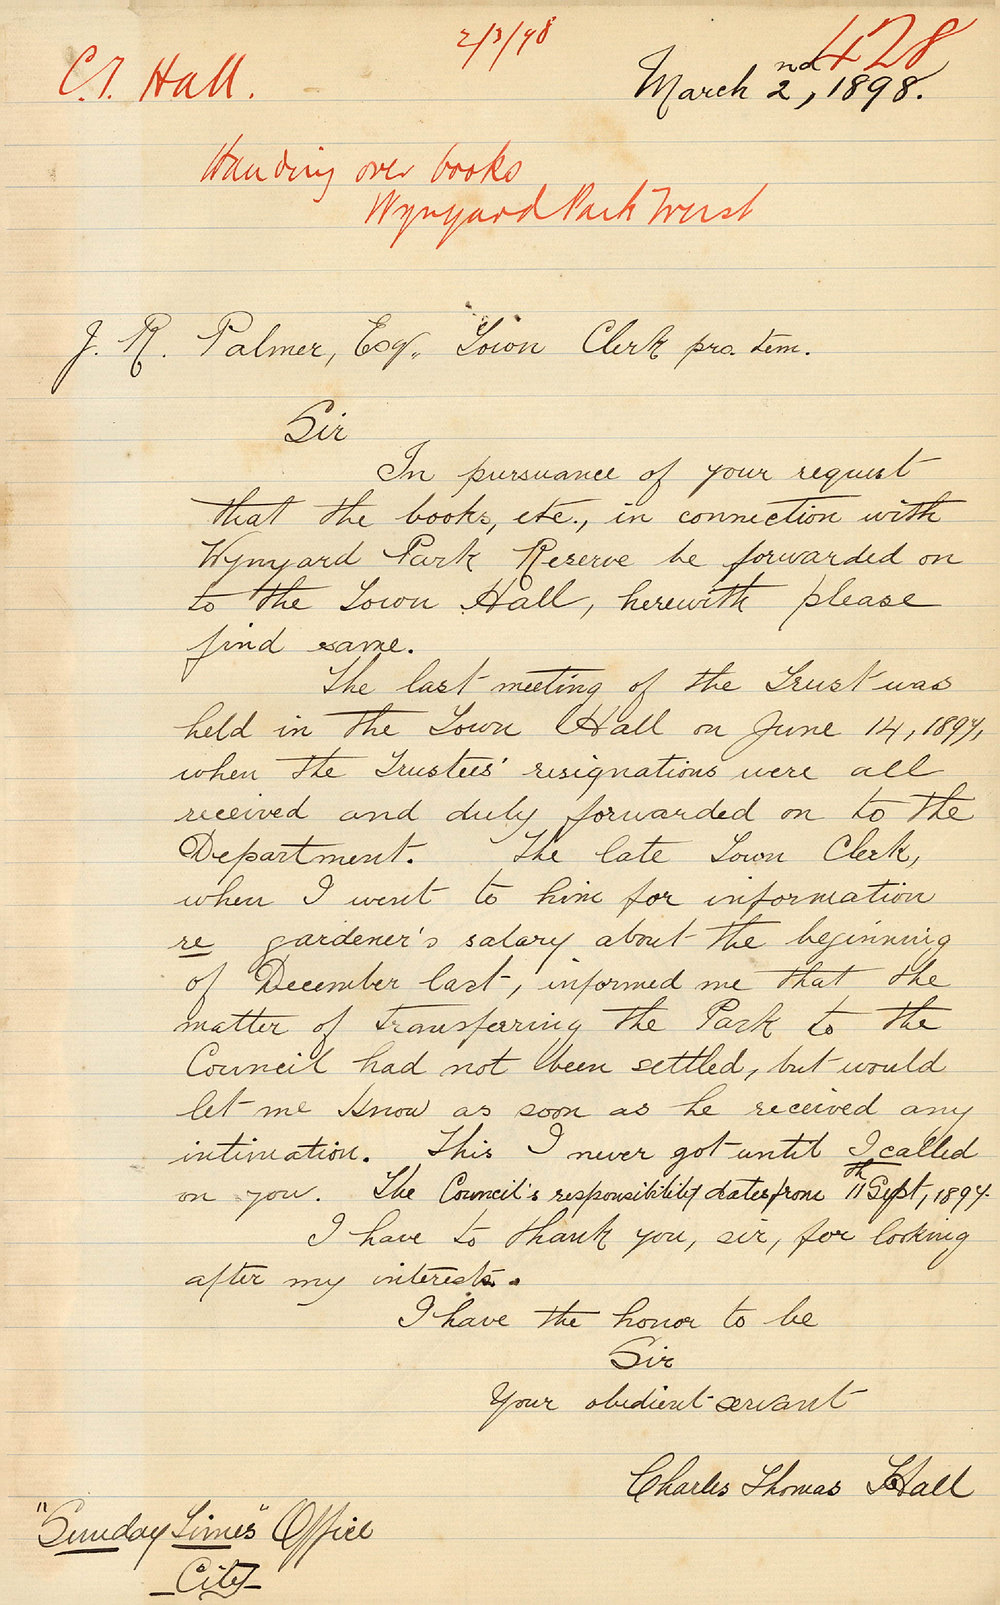 2/3/98
428
C.T. Hall.
March 2nd, 1898.
Handing over books
Wynyard Park Trust
J. R. Palmer, Esq., Town Clerk pro. tem.
Sir
In pursuance of your request
that the books, etc., in connection with
Wynyard Park Reserve be forwarded on
to the Town Hall, herewith please
find same.
The last meeting of the Trust was
held in the Town Hall on June 14, 1897,
when the Trustees' resignations were all
received and duly forwarded on to the
Department. The late Town Clerk,
when I went to him for information
re gardener's salary about the beginning
of December last, informed me that the
matter of transferring the Park to the
Council had not been settled, but would
let me know as soon as he received any
intimation. This I never got until I called
on you. The Council's responsibility dates from 11th Sept, 1897.
I have to thank you, sir, for looking
after my interests.
I have the honor to be
Sir
Your obedient servant
Charles Thomas Hall
"Sunday Times" Office
City